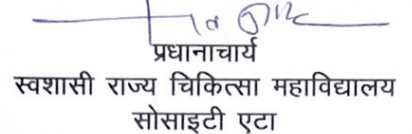 प्रधानाचार्य
स्वशासी राज्य चिकित्सा महाविद्यालय
सोसाइटी एटा